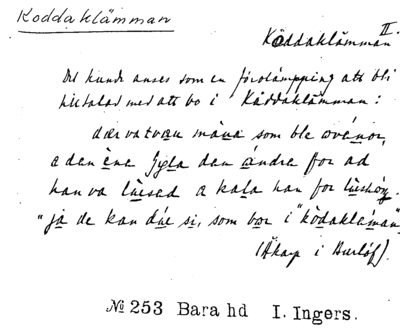 Koddaklämman
II.
Kåddaklämman
Det kunde anses som en förolämpning att bli
tilltalad med att bo i Kåddaklämman:
dær va tvau måna som ble ovénor,
a den ène fyla dan ándre for ad
han va lùsed a kala han for lùshóg.
"ja de kan dúe si, som bor i "kòdakläman"
(Åkarp i Burlöf).
№ 253 Bara hd I. Ingers.